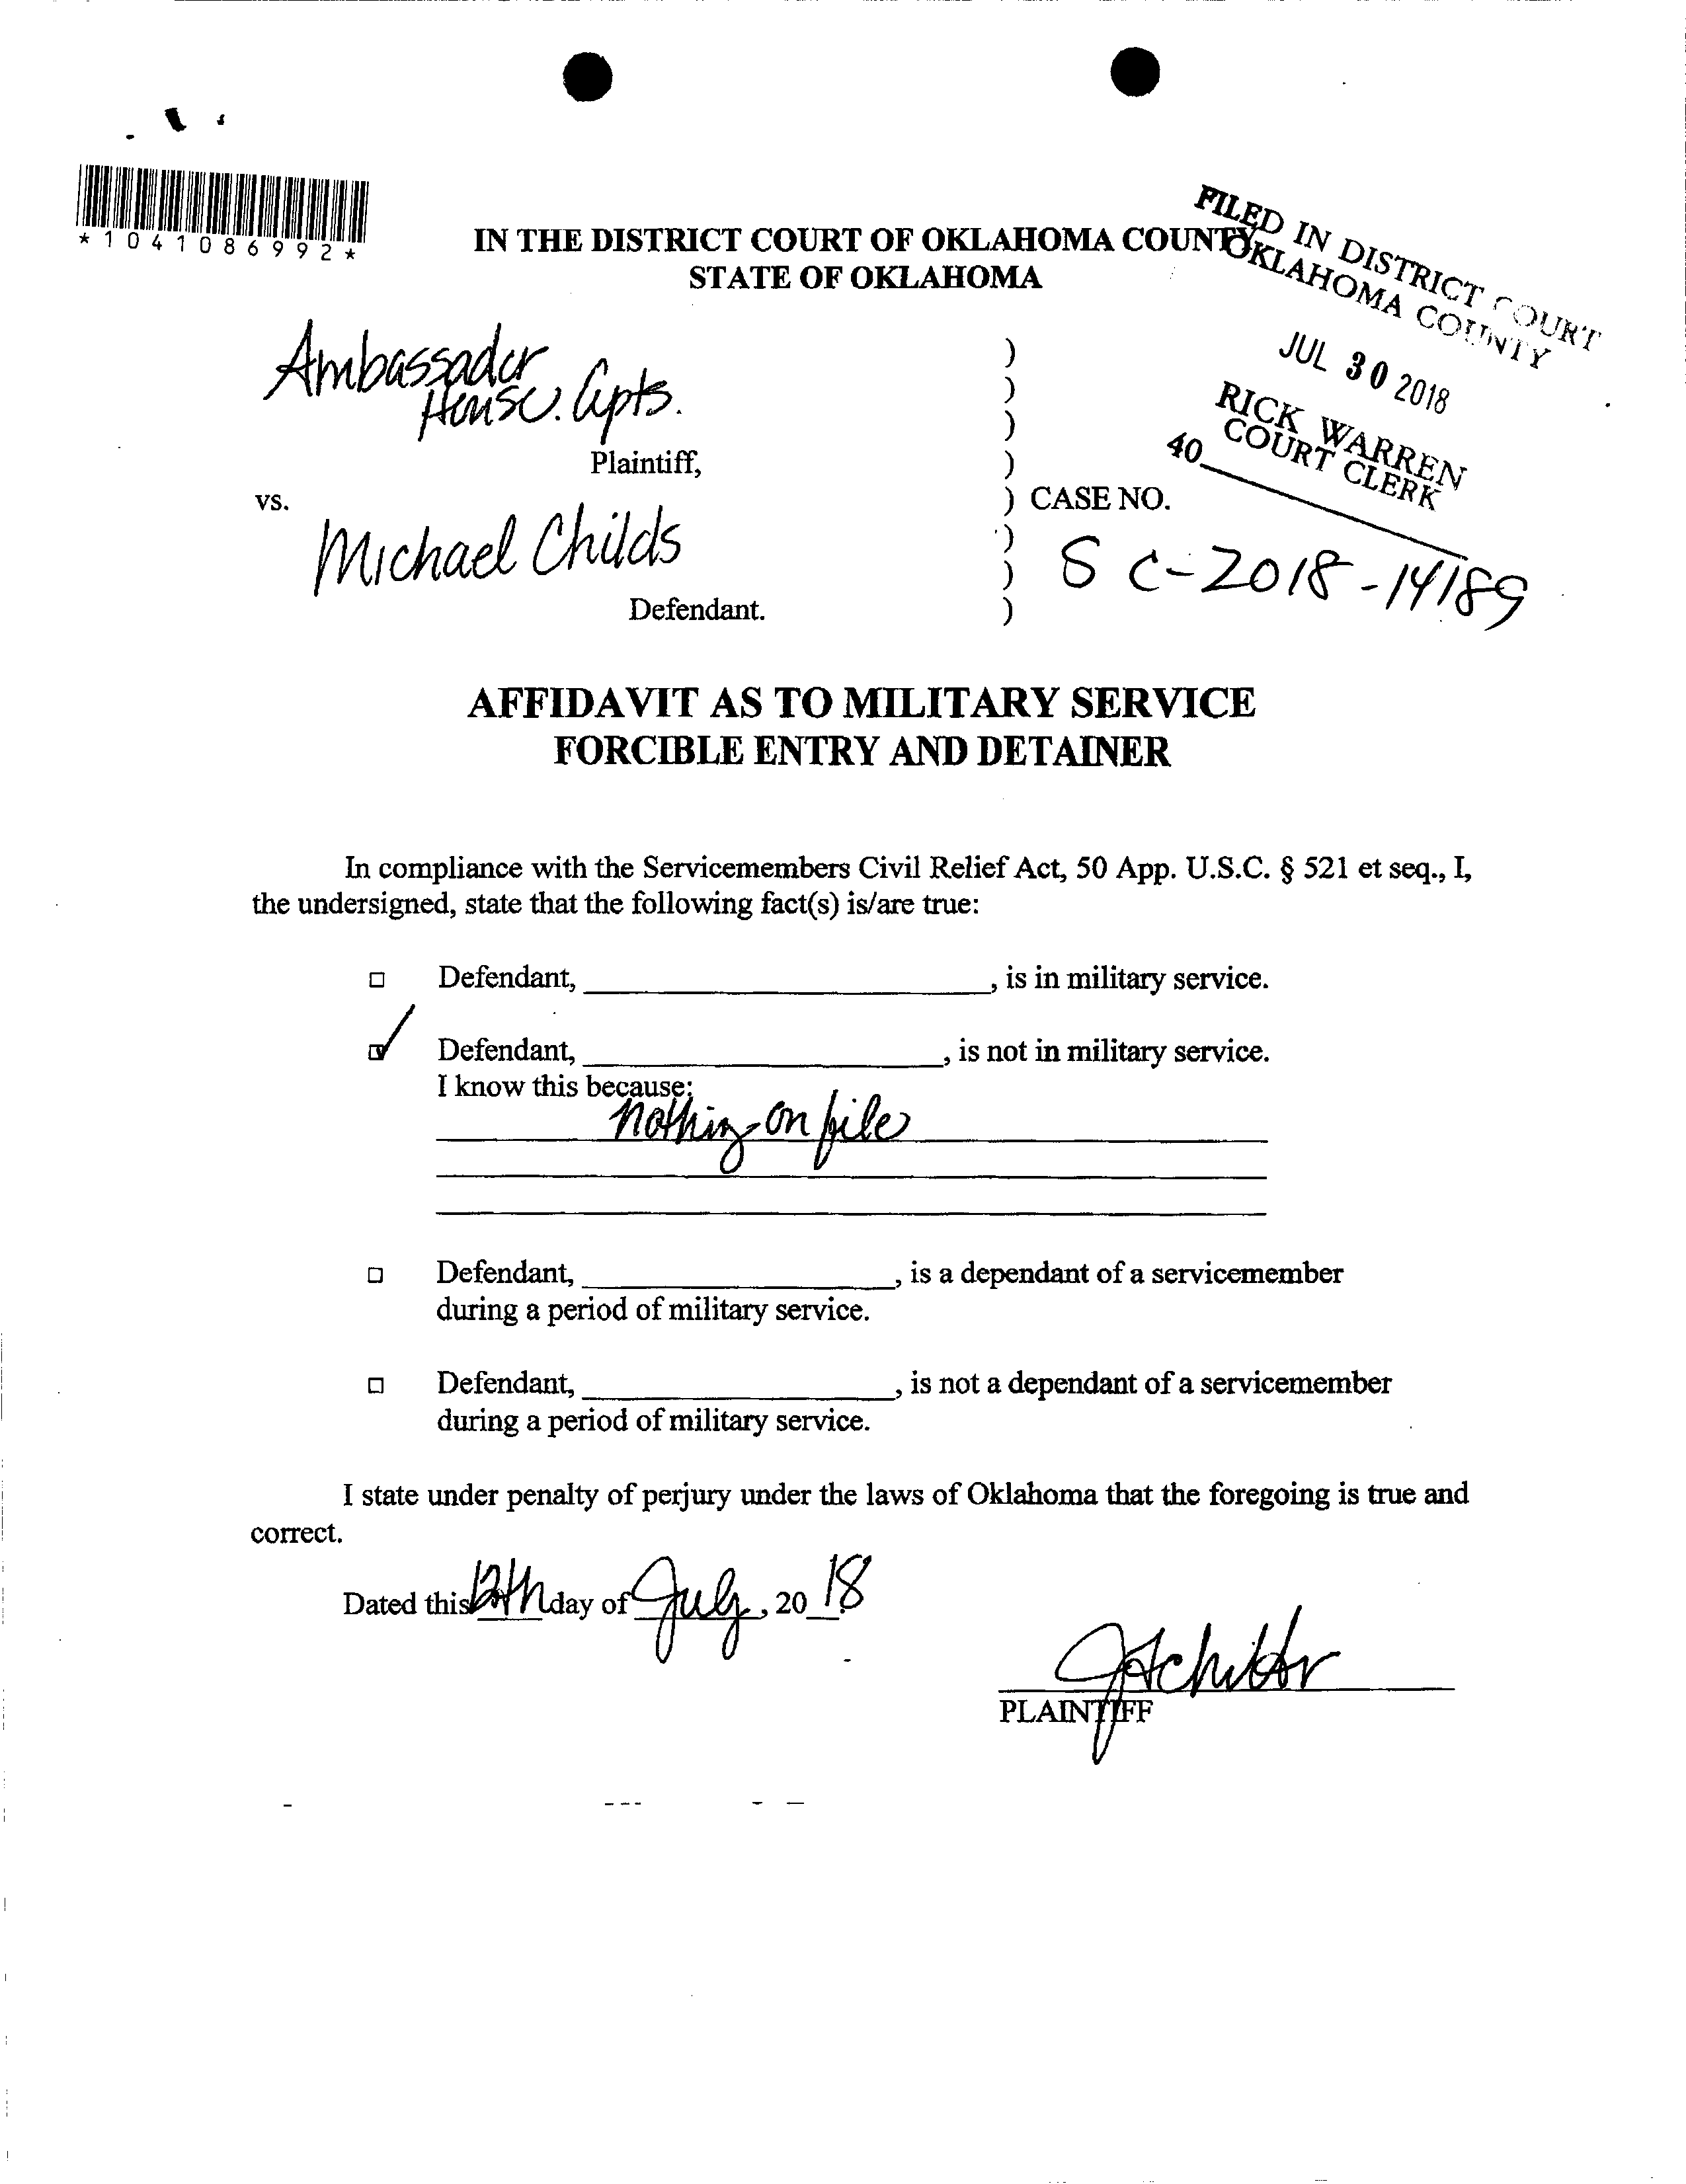 *1041086992*
FILED IN DISTRICT COURT
OKLAHOMA COUNTY
JUL 30 2018
RICK WARREN
COURT CLERK
40
IN THE DISTRICT COURT OF OKLAHOMA COUNTY
STATE OF OKLAHOMA
Ambassador
House. Apts.
Plaintiff,
vs.
) CASE NO.
Michael Childs
SC-2018-14189
Defendant.
AFFIDAVIT AS TO MILITARY SERVICE
FORCIBLE ENTRY AND DETAINER
In compliance with the Servicemembers Civil Relief Act, 50 App. U.S.C. § 521 et seq., I,
the undersigned, state that the following fact(s) is/are true:
Defendant, ____________________, is in military service.
Defendant, ____________________, is not in military service.
I know this because:
nothing on file
Defendant, ____________________, is a dependant of a servicemember
during a period of military service.
Defendant, ____________________, is not a dependant of a servicemember
during a period of military service.
I state under penalty of perjury under the laws of Oklahoma that the foregoing is true and
correct.
Dated this 12th day of July, 20 18
PLAINTIFF